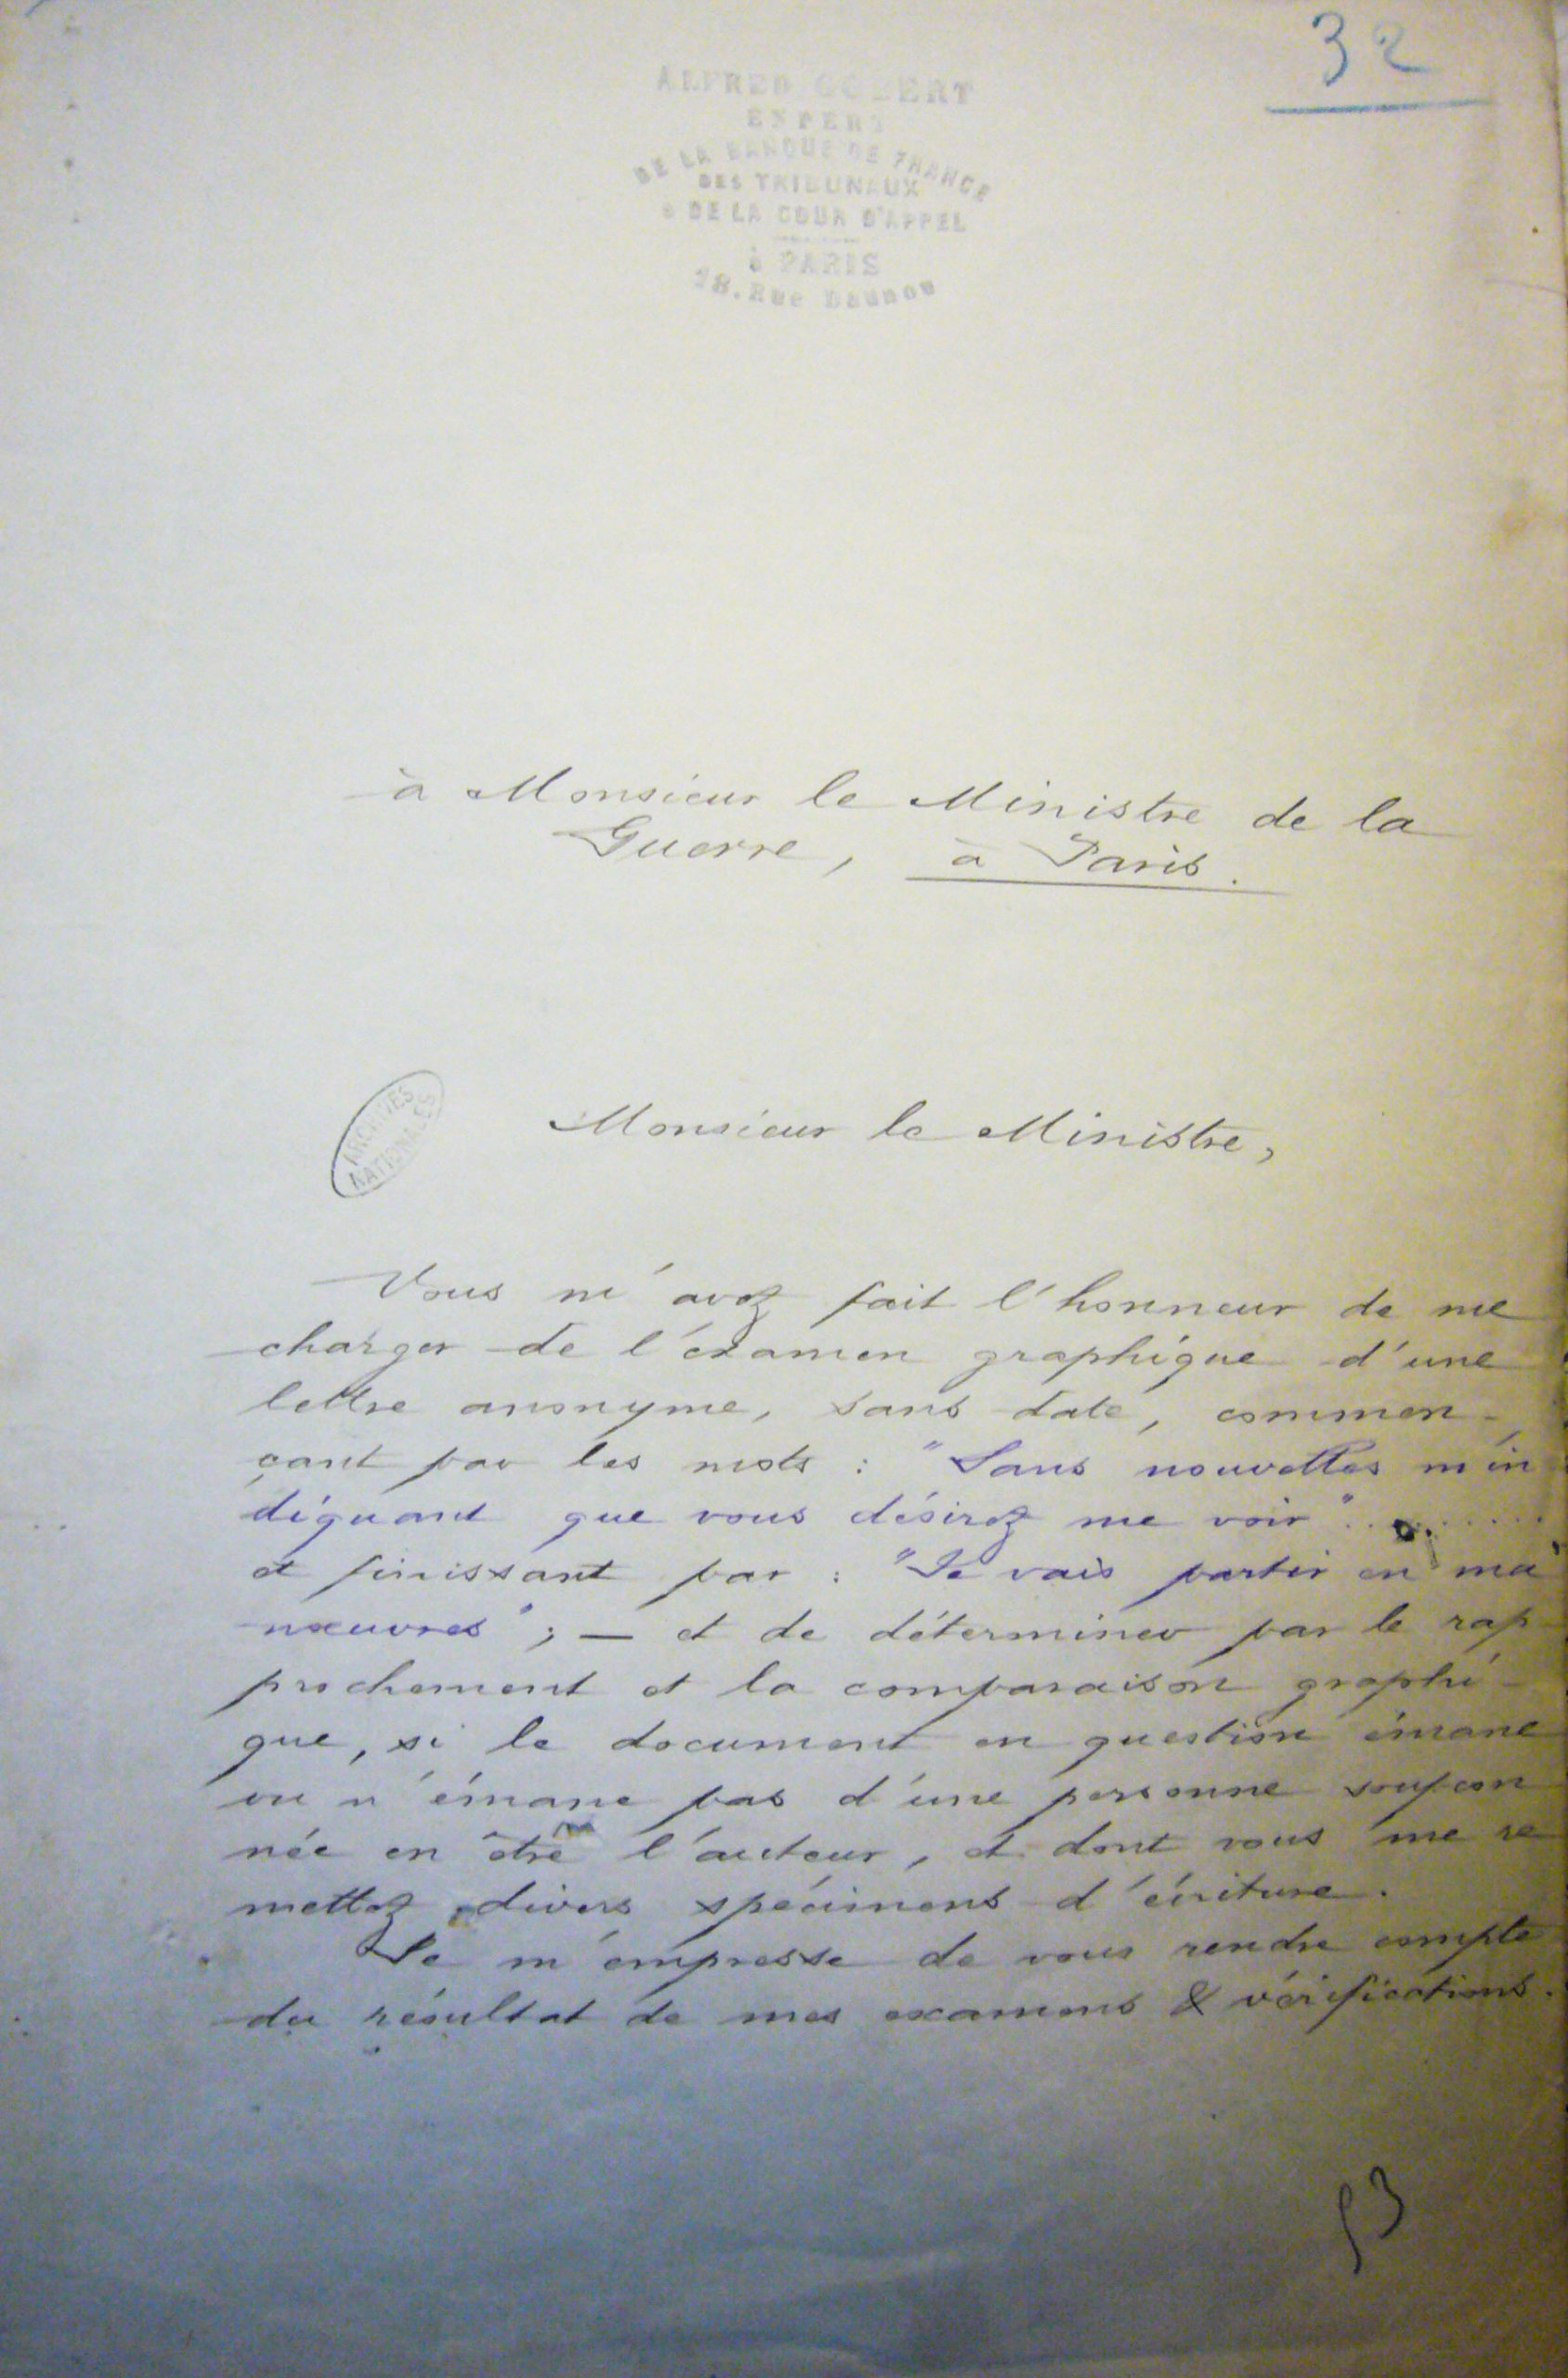 32
ALFRED GOBERT
EXPERT
DE LA BANQUE DE FRANCE
DES TRIBUNAUX
& DE LA COUR D'APPEL
à PARIS
Rue Daunou
à Monsieur le Ministre de la
Guerre, à Paris.
ARCHIVES
NATIONALES
Monsieur le Ministre,
Vous m'avez fait l'honneur de me
charger de l'examen graphique d'une
lettre anonyme, sans date, commen-
çant par les mots : "Sans nouvelles m'in
diquant que vous désirez me voir" ........
et finissant par : "Je vais partir en ma
nœuvres" ; — et de déterminer par le rap
prochement et la comparaison graphi-
que, si le document en question émane
ou n'émane pas d'une personne soupçon
née en être l'auteur, et dont vous me re
mettez divers spécimens d'écriture.
Je m'empresse de vous rendre compte
du résultat de mes examens & vérifications.